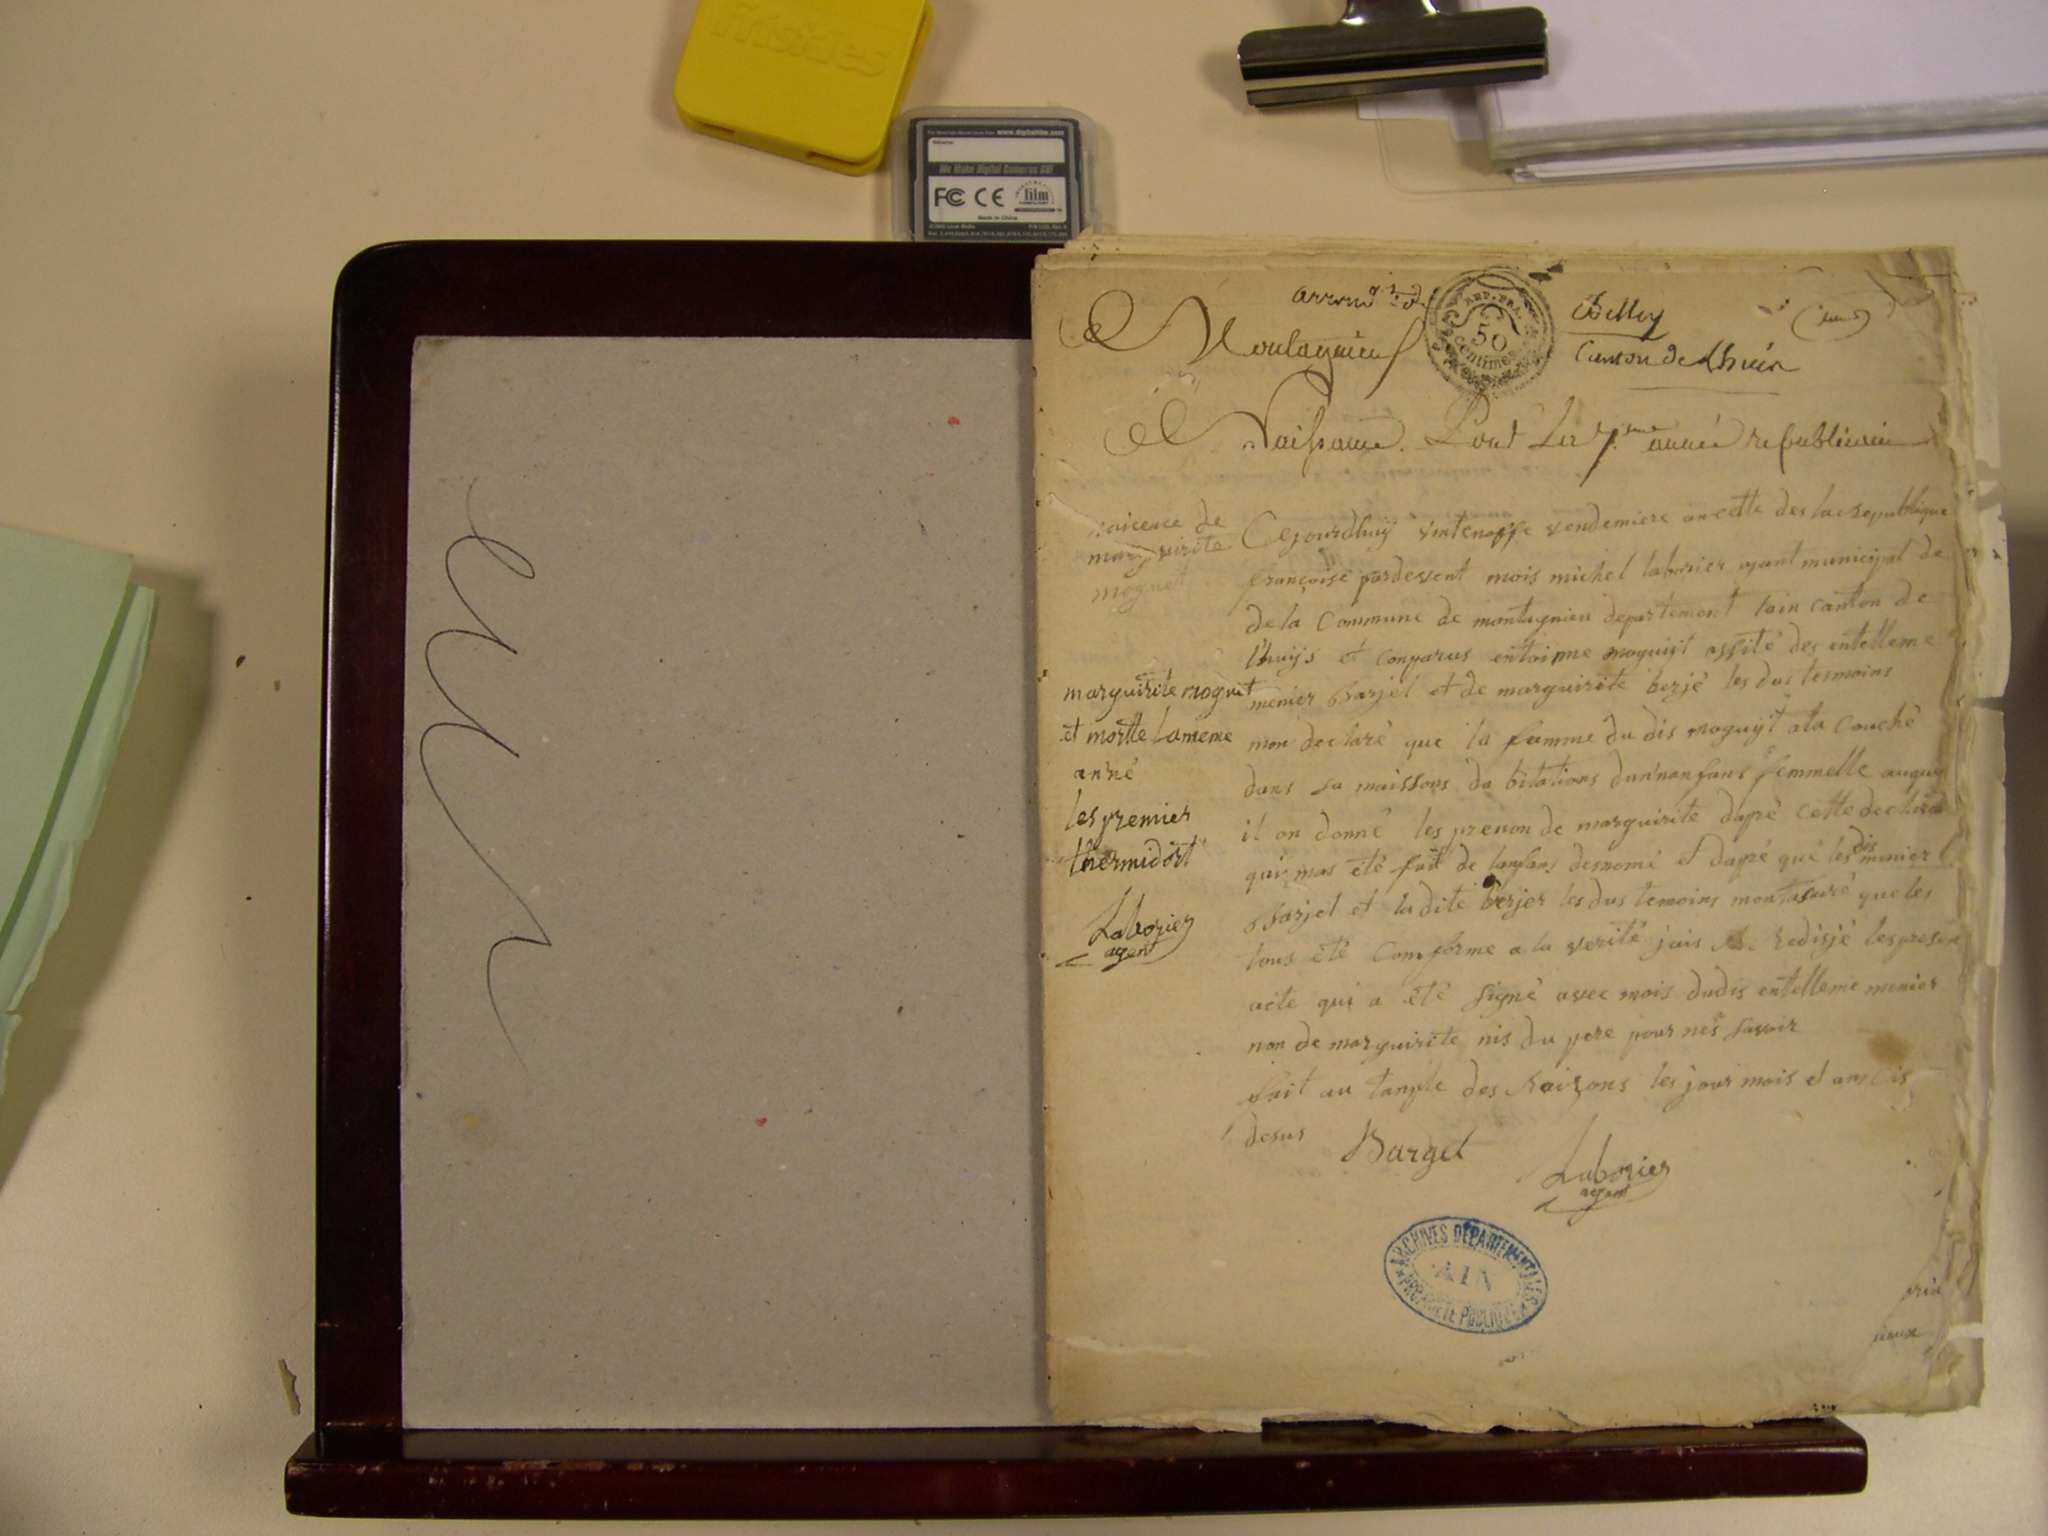 Friskies
www.digitalfilm.com
We Make Digital Cameras Go!
FC CE film
Made in China
an
arrond
Belley
Montagnieu
REP. FRA.
50
centimes
Canton de Lhuis
Naissance. Pour La 7.eme année republicain
naicence de
marguirite
moguet
Cejourdhuy vintenoffe vendemiere an cette des la republique
françoise pardevent mois michel laborier ajant municipal de
de la Commune de montagnieu departement lain canton de
lhuijs et Conparus entoinne moguijt assité des entelleme
menier barjel et de marguirite berjé les dus tesmoins
mon declaré que la famme du dis moguijt ata Couché
dans sa maissons da bitations dun'nanfans femmelle auquel
il on donné les prenon de marguirite dapré cette declara
qui mas eté fait de lanfans desnomé et dapré qué les dis menier
barjet et ladite berjer les dus temoins montasuré que les
tous eté Comforme a la verité jais Redisjé les presen
acte qui a été signé avec mois dudis entelleme menier
non de marguirite nis du pere pour nés savoir
fait au tanple des Raizons les jour mois et an dis
desus
marguirite moguet
et mortte lameme
anné
les premier
thermidort
Laborier
agent
Barget
Laborier
agent
ARCHIVES DEPARTEMENTALES
AIN
PROPRIETE PUBLIQUE